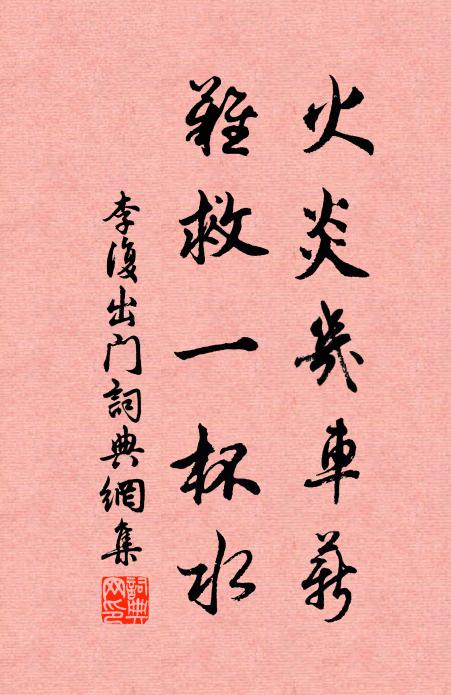 火炎幾車薪
難救一杯水
李復出門詞典網集
詞典
网印